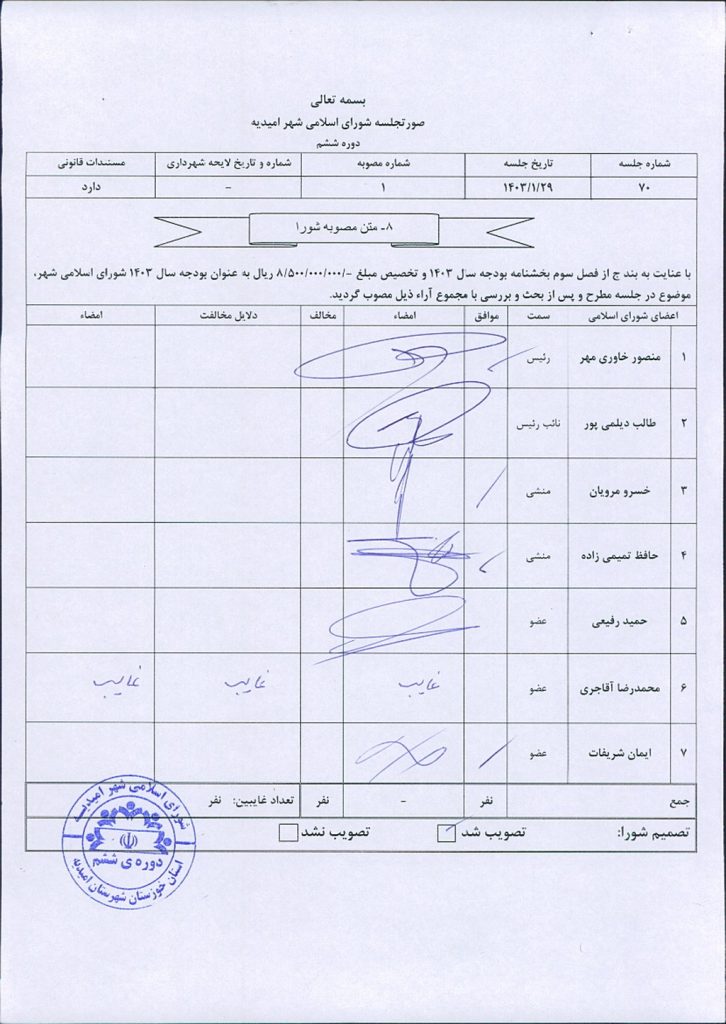 بسمه تعالی
صورتجلسه شورای اسلامی شهر امیدیه
دوره ششم
شماره جلسه تاریخ جلسه شماره مصوبه شماره و تاریخ لایحه شهرداری مستندات قانونی
۷۰ ۱۴۰۳/۱/۲۹ ۱ - دارد
۸- متن مصوبه شورا
با عنایت به بند ج از فصل سوم بخشنامه بودجه سال ۱۴۰۳ و تخصیص مبلغ -/۸/۵۰۰/۰۰۰/۰۰۰ ریال به عنوان بودجه سال ۱۴۰۳ شورای اسلامی شهر،
موضوع در جلسه مطرح و پس از بحث و بررسی با مجموع آراء ذیل مصوب گردید.
اعضای شورای اسلامی سمت موافق امضاء مخالف دلایل مخالفت امضاء
۱ منصور خاوری مهر رئیس
۲ طالب دیلمی پور نائب رئیس
۳ خسرو مرویان منشی
۴ حافظ تمیمی زاده منشی
۵ حمید رفیعی عضو
۶ محمدرضا آقاجری عضو غایب غایب غایب
۷ ایمان شریفات عضو
جمع نفر - نفر تعداد غایبین: نفر
تصمیم شورا: تصویب شد تصویب نشد
شورای اسلامی شهر امیدیه
دوره ی ششم
استان خوزستان شهرستان امیدیه